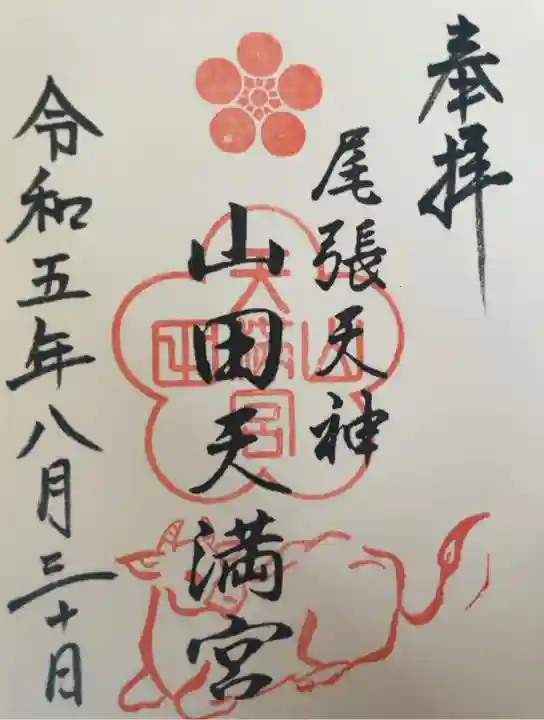 奉拝
尾張天神
山田天満宮
令和五年八月三十日
山田
天満宮